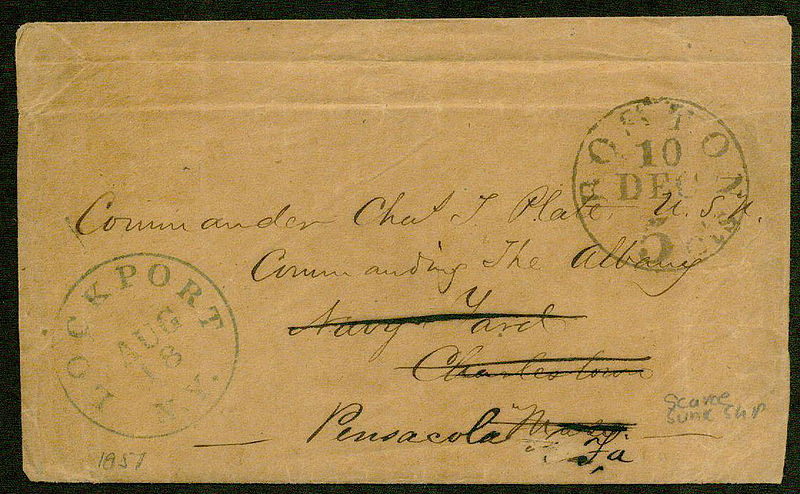 BOSTON
10
DEC
5
Commander Chas T Platt U.S.N.
Commanding The Albany
LOCKPORT N.Y.
AUG
18
Navy Yard
Charlestown
Mass.
Pensacola
Fa
Scarce
Sunk Ship
1851